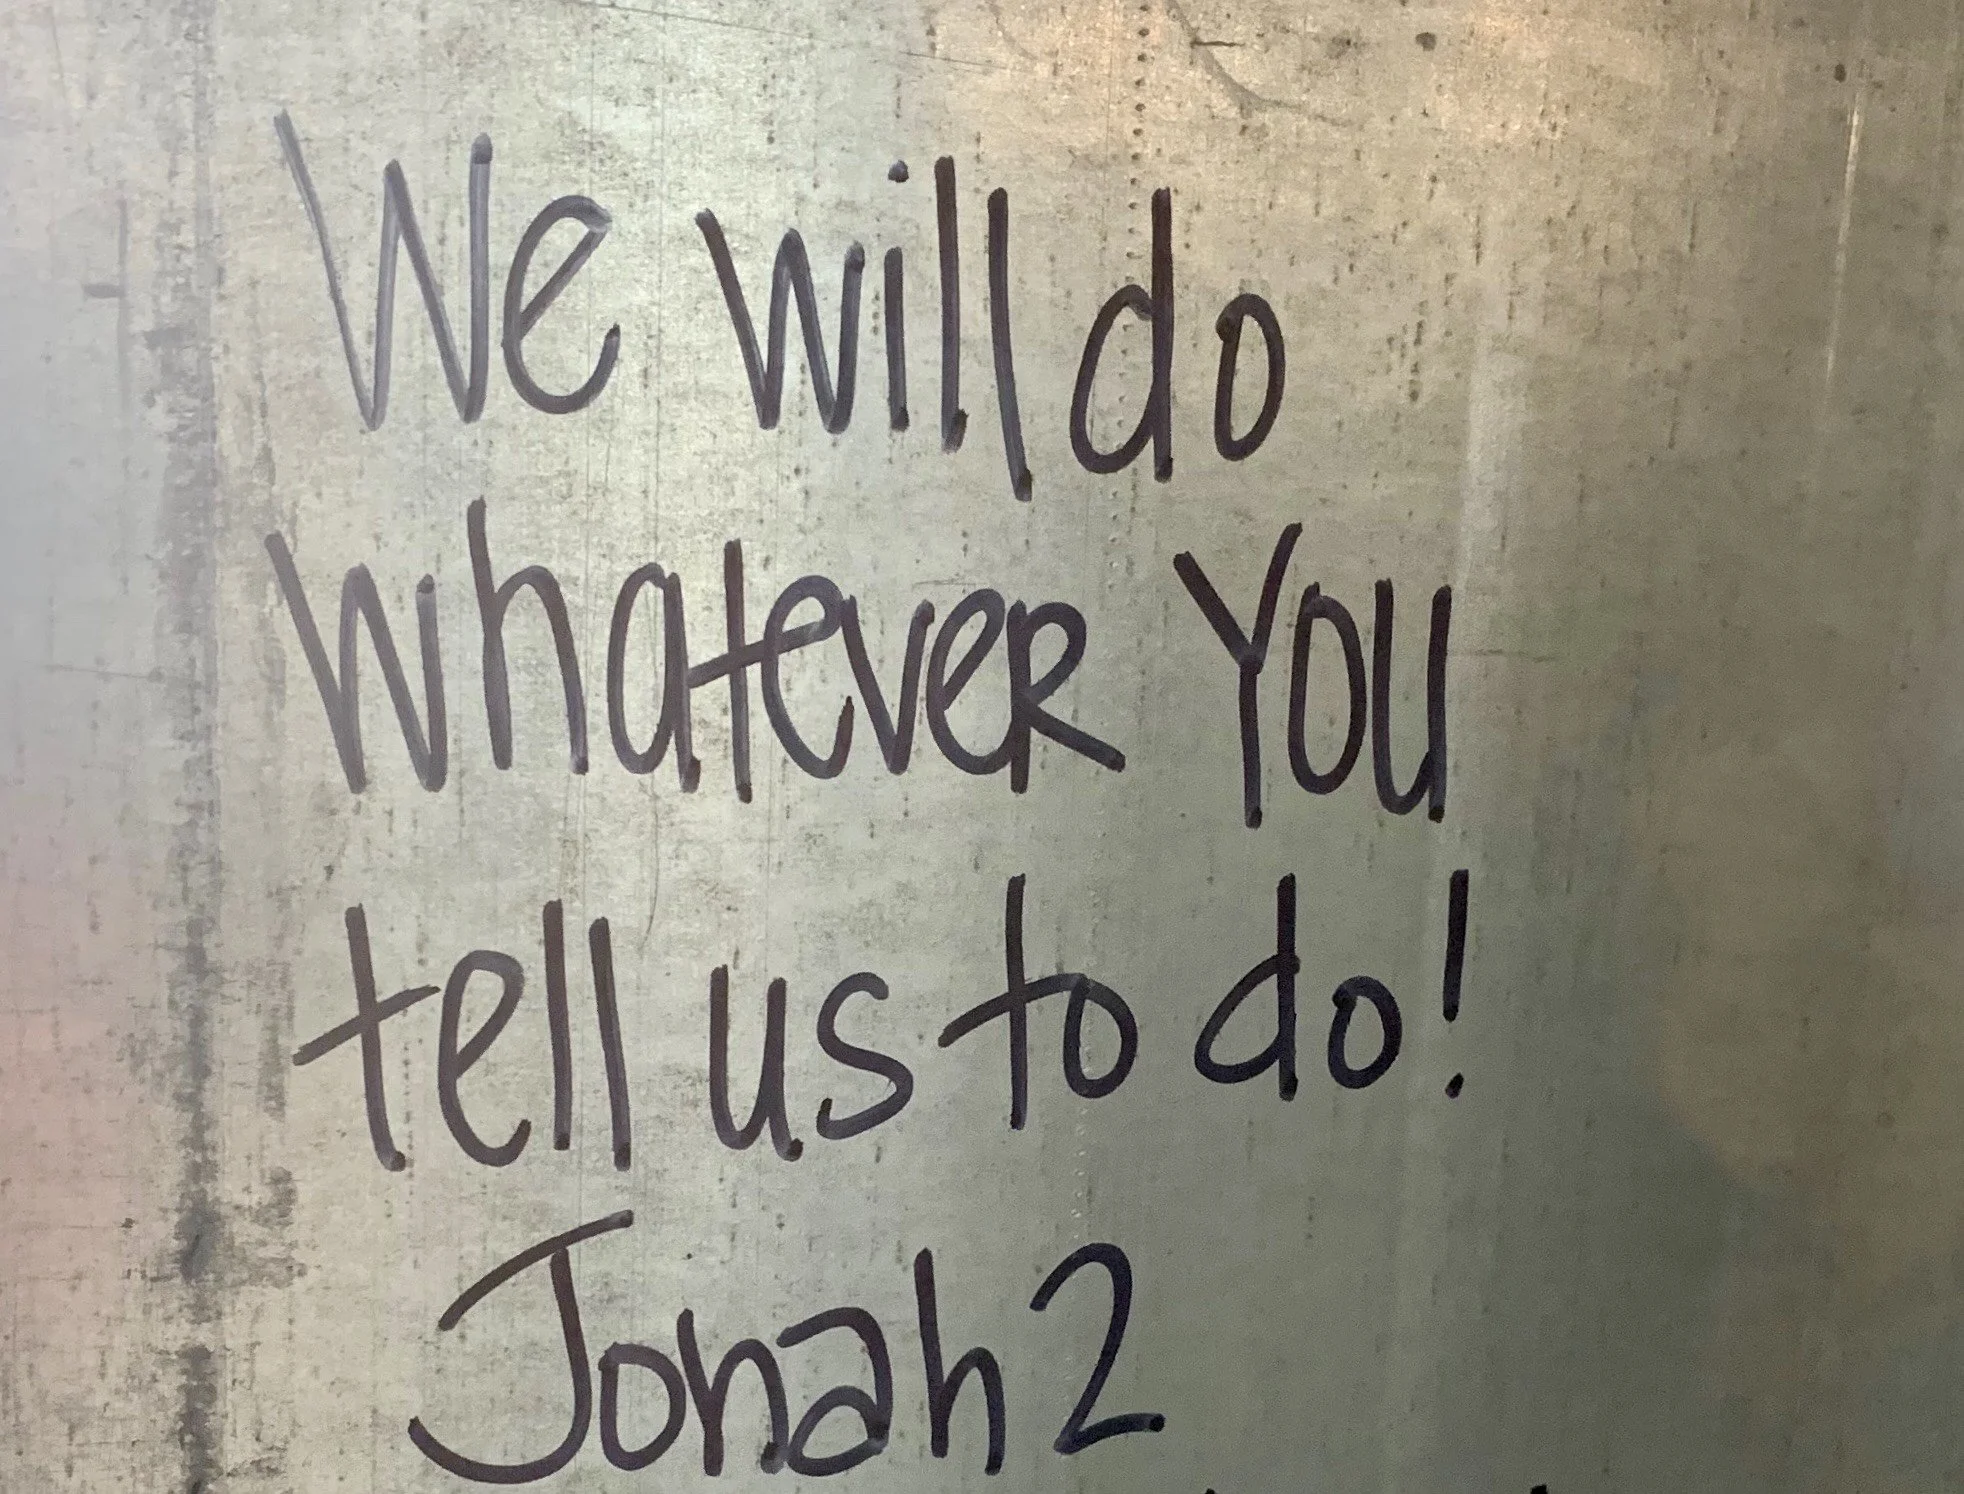 We will do
whatever You
tell us to do!
Jonah 2